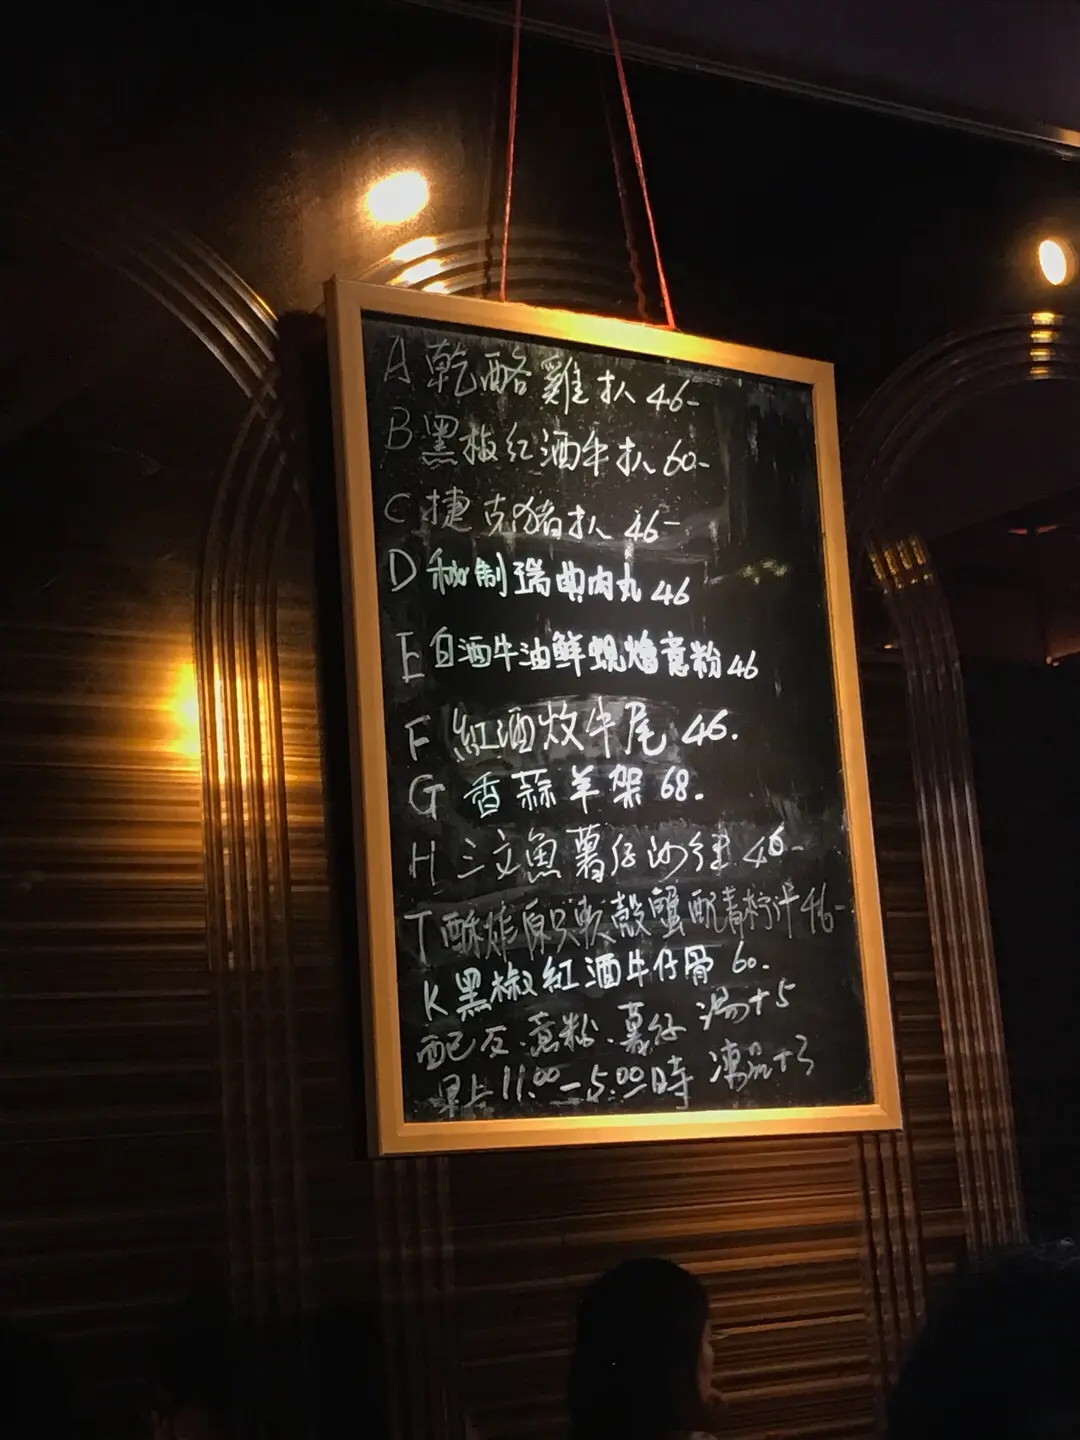 A 乾酪雞扒 46-
B 黑椒红酒牛扒 60-
C 捷克猪扒 46-
D 秘制瑞典肉丸 46
E 白酒牛油鮮蜆燴意粉 46
F 紅酒炆牛尾 46.
G 香蒜羊架 68.
H 三文魚薯仔沙律 46-
酥炸原只軟殼蟹配青柠汁 46-
K 黑椒紅酒牛仔骨 60.
配 意粉.薯仔 湯+5
早上11:00-5:00時 凍品+3